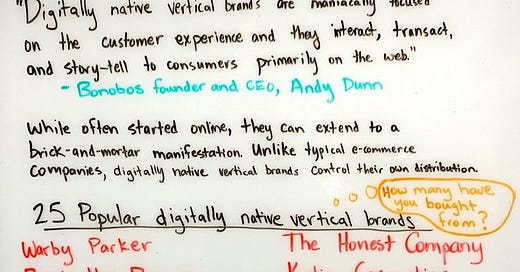 "Digitally native vertical brands are maniacally focused
on the customer experience and they interact, transact,
and story-tell to consumers primarily on the web."
- Bonobos founder and CEO, Andy Dunn
While often started online, they can extend to a
brick-and-mortar manifestation. Unlike typical e-commerce
Companies, digitally native vertical brands control their own distribution.
How many have
you bought
from?
25 Popular digitally native vertical brands
Warby Parker
The Honest Company